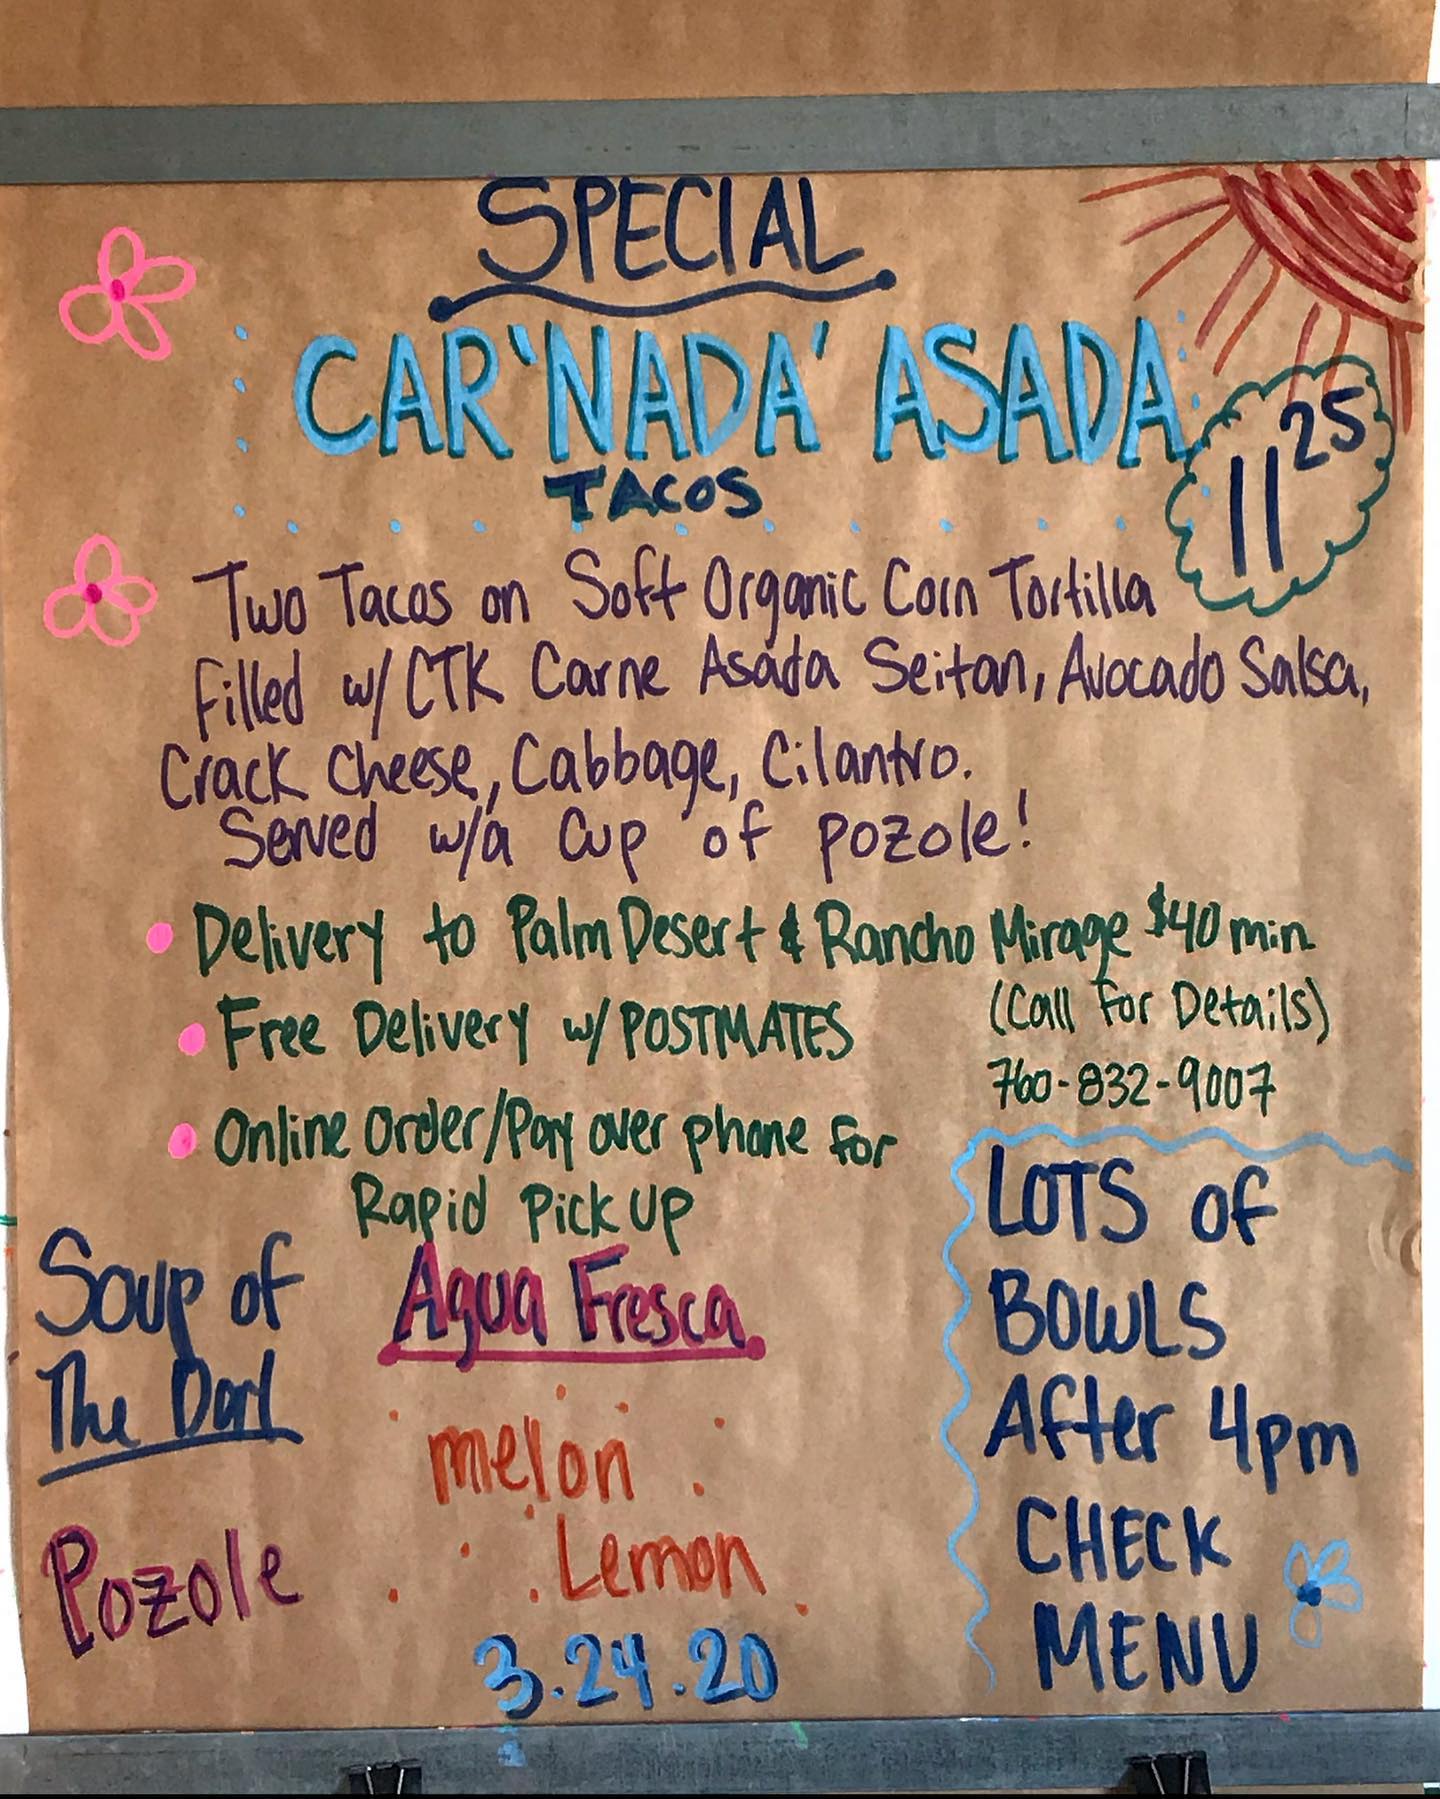 SPECIAL
CAR'NADA' ASADA
TACOS
11 25
Two Tacos on Soft Organic Corn Tortilla
Filled w/ CTK Carne Asada Seitan, Avocado Salsa,
Crack Cheese, Cabbage, Cilantro.
Served w/a Cup of pozole!
Delivery to Palm Desert & Rancho Mirage $40 min
(Call for Details)
760-832-9007
Free Delivery w/ POSTMATES
Online Order/Pay over phone for
Rapid Pick up
Soup of
The Day
Pozole
Agua Fresca
melon
Lemon
3.24.20
LOTS of
BOWLS
After 4pm
CHECK
MENU